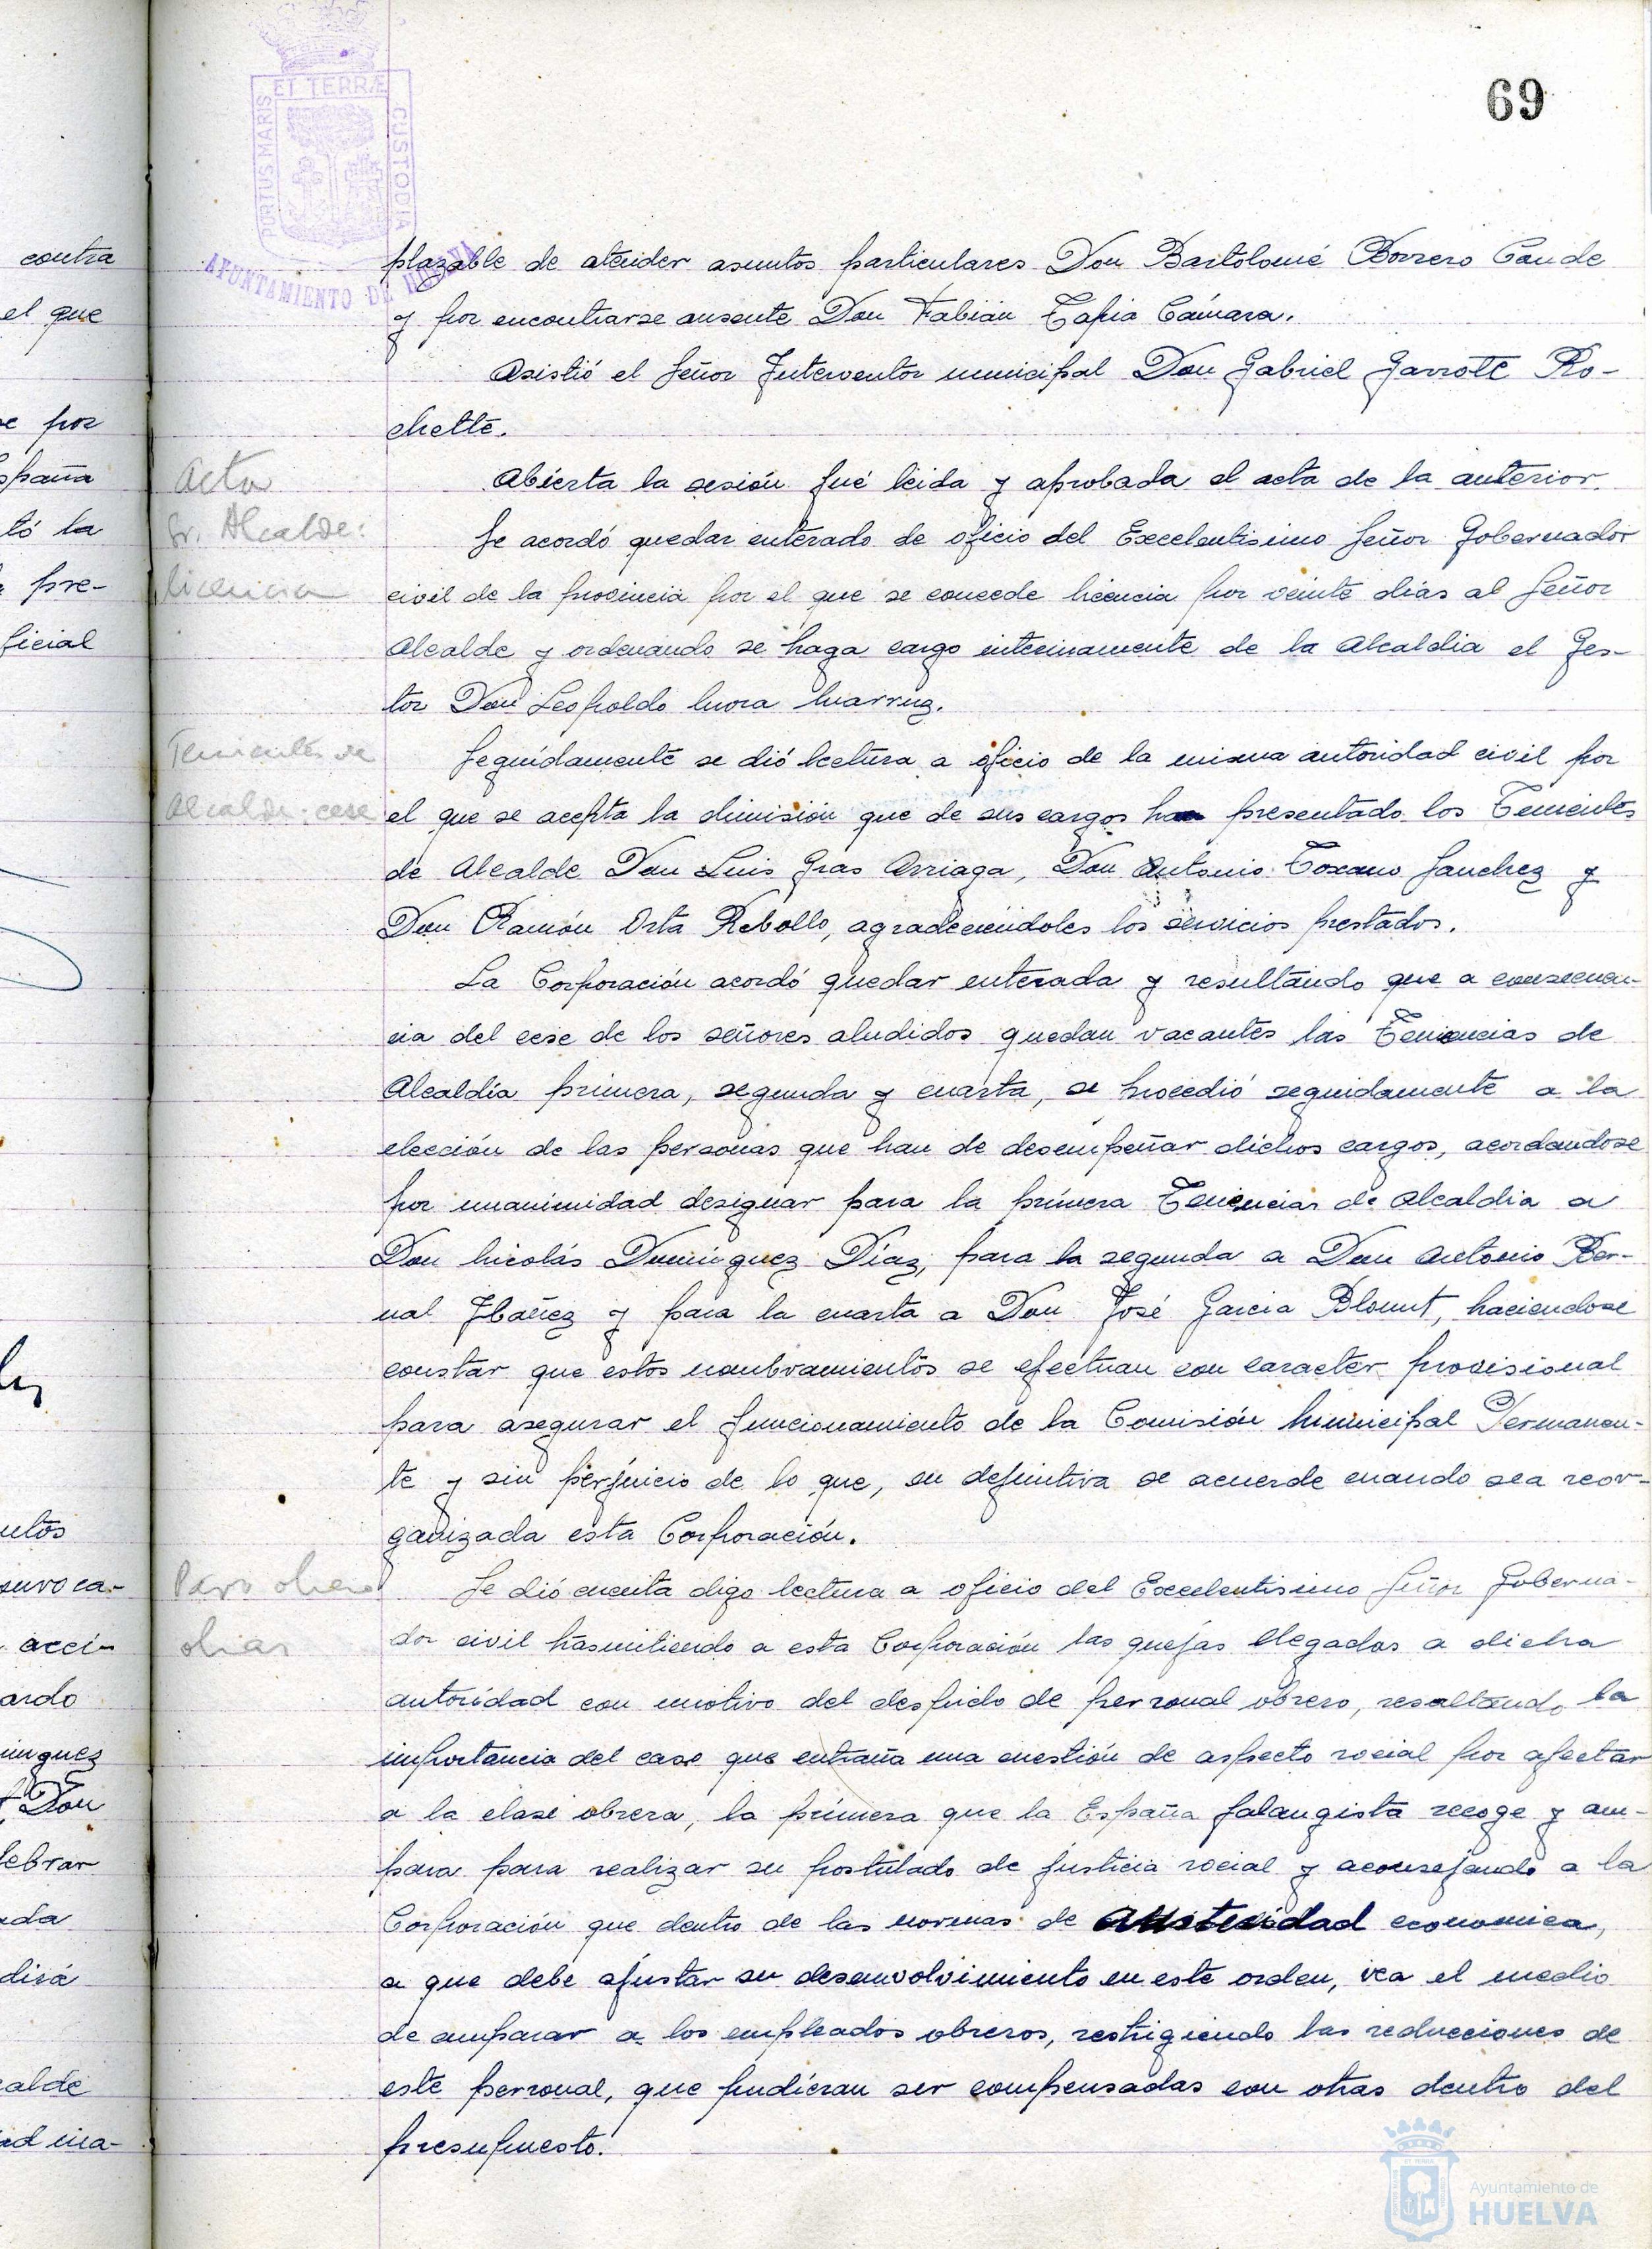 69
PORTUS MARIS ET TERRÆ CUSTODIA
AYUNTAMIENTO DE HUELVA
plazable de atender asuntos particulares Don Bartolomé Borrero Conde
y por encontrarse ausente Don Fabián Tapia Cámara.
Asistió el Señor Interventor municipal Don Gabriel Garrote Ro-
chette.
Acta
Abierta la sesión fué leida y aprobada el acta de la anterior.
Sr. Alcalde:
Se acordó quedar enterado de oficio del Excelentisimo Señor Gobernador
licencia
civil de la provincia por el que se concede licencia por veinte dias al Señor
Alcalde y ordenando se haga cargo interinamente de la Alcaldia el Ges-
tor Don Leopoldo Mora Marruz.
Tenientes de
Seguidamente se dió lectura a oficio de la misma autoridad civil por
Alcalde: cese
el que se acepta la dimisión que de sus cargos han presentado los Tenientes
de Alcalde Don Luis Gras Arriaga, Don Antonio Toscano Sanchez y
Don Ramón Orta Rebollo, agradeciéndoles los servicios prestados.
La Corporación acordó quedar enterada y resultando que a consecuen-
cia del cese de los señores aludidos quedan vacantes las Tenencias de
Alcaldía primera, segunda y cuarta, se procedió seguidamente a la
elección de las personas que han de desempeñar dichos cargos, acordandose
por unanimidad designar para la primera Tenencias de Alcaldia a
Don Nicolás Dominguez Díaz, para la segunda a Don Antonio Ber-
nal Ibañez y para la cuarta a Don José Garcia Blount, haciendose
constar que estos nombramientos se efectuan con caracter provisional
para asegurar el funcionamiento de la Comisión Municipal Permanen-
te y sin perjuicio de lo que, en definitiva se acuerde cuando sea reor-
ganizada esta Corporación.
Paro obrero
Se dió cuenta digo lectura a oficio del Excelentisimo Señor Goberna-
dor civil trasmitiendo a esta Corporación las quejas llegadas a dicha
autoridad con motivo del despido de personal obrero, resaltando la
importancia del caso que entraña una cuestión de aspecto social por afectar
a la clase obrera, la primera que la España falangista recoge y am-
para para realizar su postulado de justicia social y aconsejando a la
Corporación que dentro de las normas de austeridad economica,
a que debe ajustar su desenvolvimiento en este orden, vea el medio
de amparar a los empleados obreros, restrigiendo las reducciones de
este personal, que pudieran ser compensadas con otras dentro del
presupuesto.
contra
el que
por
tó la
pre-
ficial
acci-
ardo
Don
lebrar
dirá
Ayuntamiento de
HUELVA